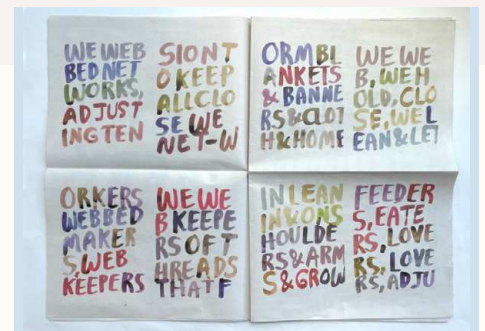 WE WEB
BED NET
WORKS,
ADJUST
ING TEN
SION T
O KEEP
ALL CLO
SE WE
NET-W
ORKERS
WEBBED
MAKER
S, WEB
KEEPERS
WE WE
B KEEPE
RS OF T
HREADS
THAT F
ORM BL
ANKETS
& BANNE
RS & CLOT
H & HOME
WE WE
B, WE H
OLD, CLO
SE, WE L
EAN & LET
IN LEAN
IN ON S
HOULDE
RS & ARM
S & GROW
FEEDER
S, EATE
RS, LOVE
RS, LOVE
RS, ADJU